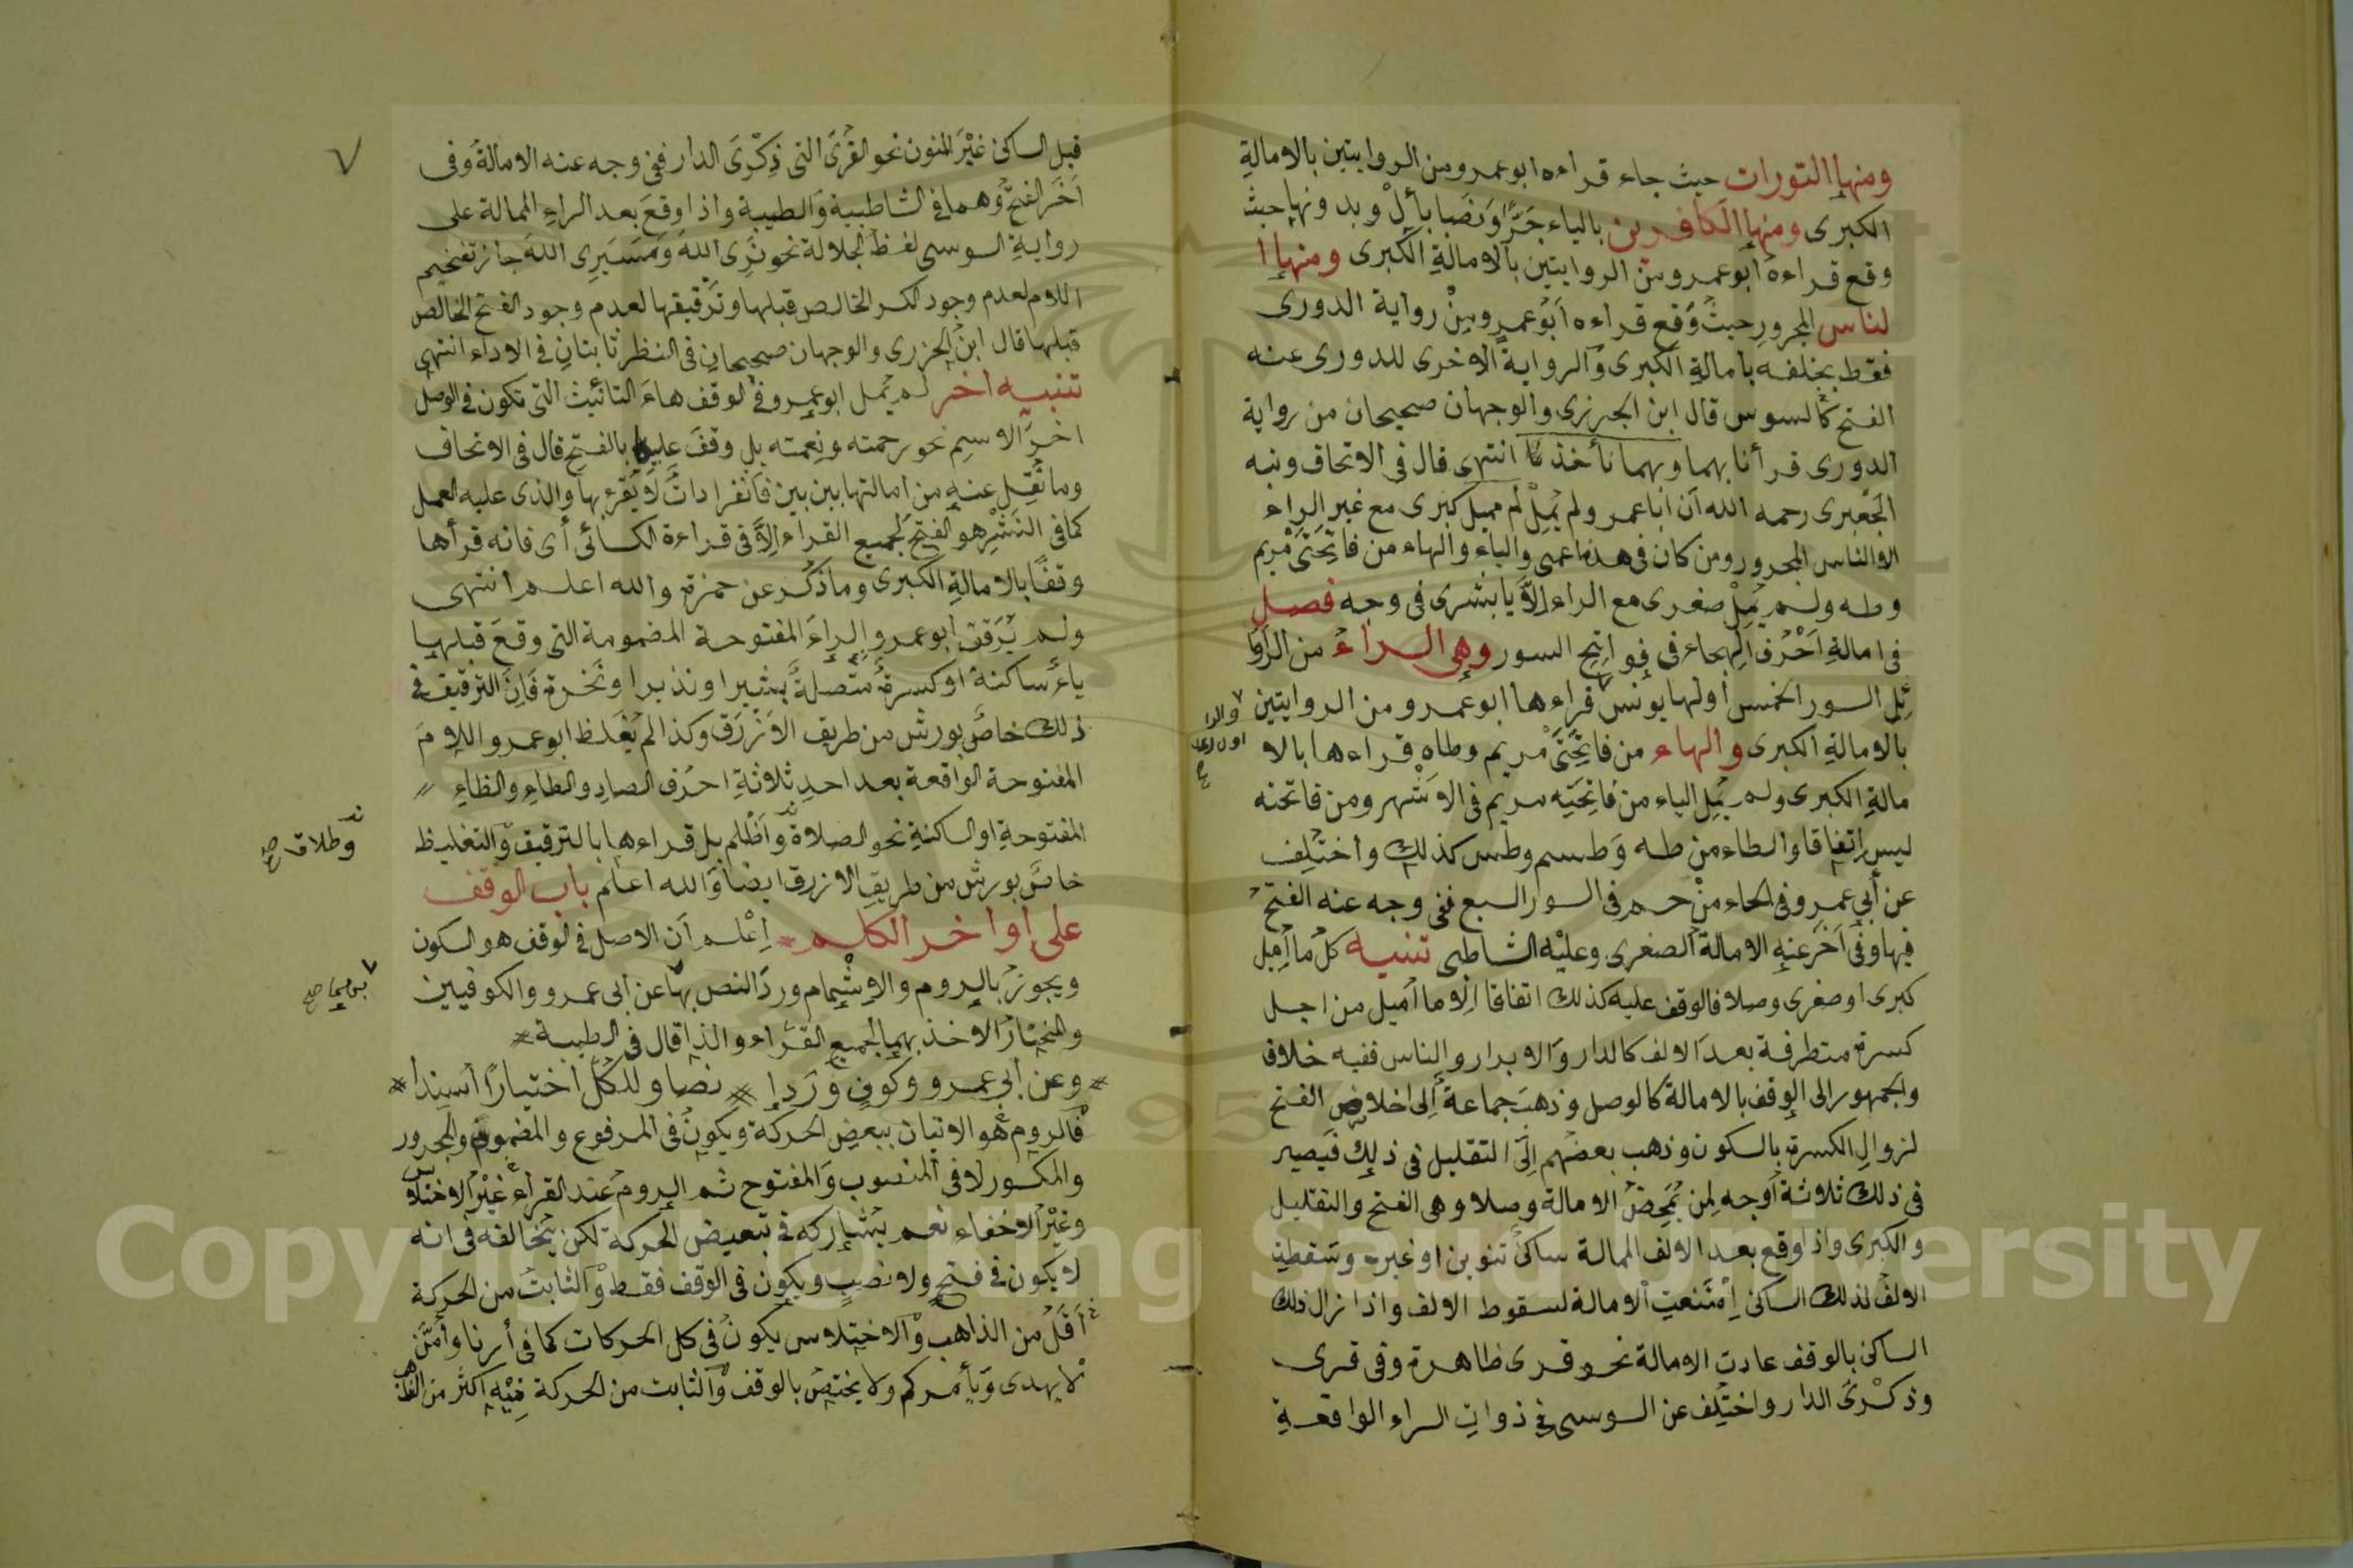 ومنها التورات حيث جاء قراءه ابو عمرو من الروايتين بالامالة
الكبرى ومنها الكافرين بالياء جَرًّا وَنَصَبا بأل وبد ونها حيث
وقع قراءه ابو عمرو من الروايتين بالامالة الكبرى ومنها ا
لناس المجرور حيث وقع قراءه ابو عمرو من رواية الدورى
فقط بخلفه بامالة الكبرى والرواية الاخرى للدورى عنه
الفتح كالسوس قال ابن الجزرى والوجهان صحيحان من رواية
الدورى قرأنا بهما وبهما نأخذ انتهى قال فى الاتحاف ونبه
الجعبرى رحمه الله ان ابا عمرو لم يمل كبرى مع غير الراء
الا الناس المجرور ومن كان فى هذه اعمى والياء والهاء من فاتحتى مريم
وطه ولم يمل صغرى مع الراء الا يا بشرى فى وجه فصل
فى امالة احرف الهجاء فى فواتح السور وهى الراء من الروا
ئل السور الخمس اولها يونس قراءها ابو عمرو من الروايتين
بالامالة الكبرى والهاء من فاتحتى مريم وطاه قراءها بالا
مالة الكبرى ولم يمل الياء من فاتحتيه مريم فى الاشهر ومن فاتحته
ليس اتفاقا والطاء من طه وطسم وطس كذلك واختلف
عن أبى عمرو فى الحاء من حم فى السور السبع ففى وجه عنه الفتح
فيها وفى آخر عنه الامالة الصغرى وعليه الشاطبى تنبيه كل ما أميل
كبرى او صغرى وصلا فالوقف عليه كذلك اتفاقا الا ما أميل من اجل
كسرة متطرفة بعد الالف كالدار والابرار والناس ففيه خلاف
والجمهور الى الوقف بالامالة كالوصل وذهب جماعة إلى اخلاص الفتح
لزوال الكسرة بالسكون وذهب بعضهم إلى التقليل فى ذلك فيصير
فى ذلك ثلاثة أوجه لمن يمحض الامالة وصلا وهى الفتح والتقليل
والكبرى واذا وقع بعد الالف الممالة ساكن تنوين او غيره وسقطت
الالف لذلك الساكن امتنعت الامالة لسقوط الالف واذا زال ذلك
الساكن بالوقف عادت الامالة نحو قرى ظاهرة وفى قرى
وذكرى الدار واختلف عن السوسى فى ذوات الراء الواقعة
والرا
قبل الساكن غير المنون نحو القرى التى ذكرى الدار ففى وجه عنه الامالة وفى
آخر الفتح وهما فى الشاطبية والطيبة واذا وقع بعد الراء الممالة على
رواية السوسى لفظ الجلالة نحو نرى الله وسيرى الله جاز تفخيم
اللام لعدم وجود الكسر الخالص قبلها وترقيقها لعدم وجود الفتح الخالص
قبلها قال ابن الجزرى والوجهان صحيحان فى النظر ثابتان فى الاداء انتهى
تنبيه آخر لم يمل ابو عمرو فى الوقف هاء التانيث التى تكون فى الوصل
اخر الاسم نحو رحمته ونعمته بل وقف عليها بالفتح قال فى الاتحاف
وما نقل عنه من امالتها بين بين فانفرادات لا يقرء بها والذى عليه العمل
كما فى النشر هو الفتح لجميع القراء الا فى قراءة الكسائى أى فانه قرأها
وقفا بالامالة الكبرى وما ذكر عن حمزة والله اعلم انتهى
ولم يرقق ابو عمرو الراء المفتوحة المضمومة التى وقع قبلها
ياء ساكنة او كسرة متصلة بشيرا ونذيرا ونخرة فان الترقيق فى
ذلك خاص بورش من طريق الازرق وكذا لم يغلظ ابو عمرو اللام
المفتوحة الواقعة بعد احد ثلاثة احرف الصاد والطاء والظاء
المفتوحة او الساكنة نحو الصلاة وأظلم بل قراءها بالترقيق والتغليظ
وطلاق صح
خاص بورش من طريق الازرق ايضا والله اعلم باب الوقف
على أواخر الكلم اعلم ان الاصل فى الوقف هو السكون
ويجوز بالروم والاشمام ورد النص بها عن ابى عمرو والكوفيين
والمختار الاخذ بهما لجميع القراء والذا قال فى الطيبة
وعن أبى عمرو وكوف وردا نصا وللكل اختيارا أسندا
فالروم هو الاتيان ببعض الحركة ويكون فى المرفوع والمضموم والمجرور
والمكسور لا فى المنصوب والمفتوح ثم الروم عند القراء غير الاختلاس
وغير الاخفاء نعم يشاركه فى تبعيض الحركة لكن يخالفه فى انه
لا يكون فى فتح ولا نصب ويكون فى الوقف فقط والثابت من الحركة
أقل من الذاهب والاختلاس يكون فى كل الحركات كما فى أرنا وأمن
لا يهدى ويأمركم ولا يختص بالوقف والثابت من الحركة فيه اكثر من الذاهب
Copyright © King Saud University